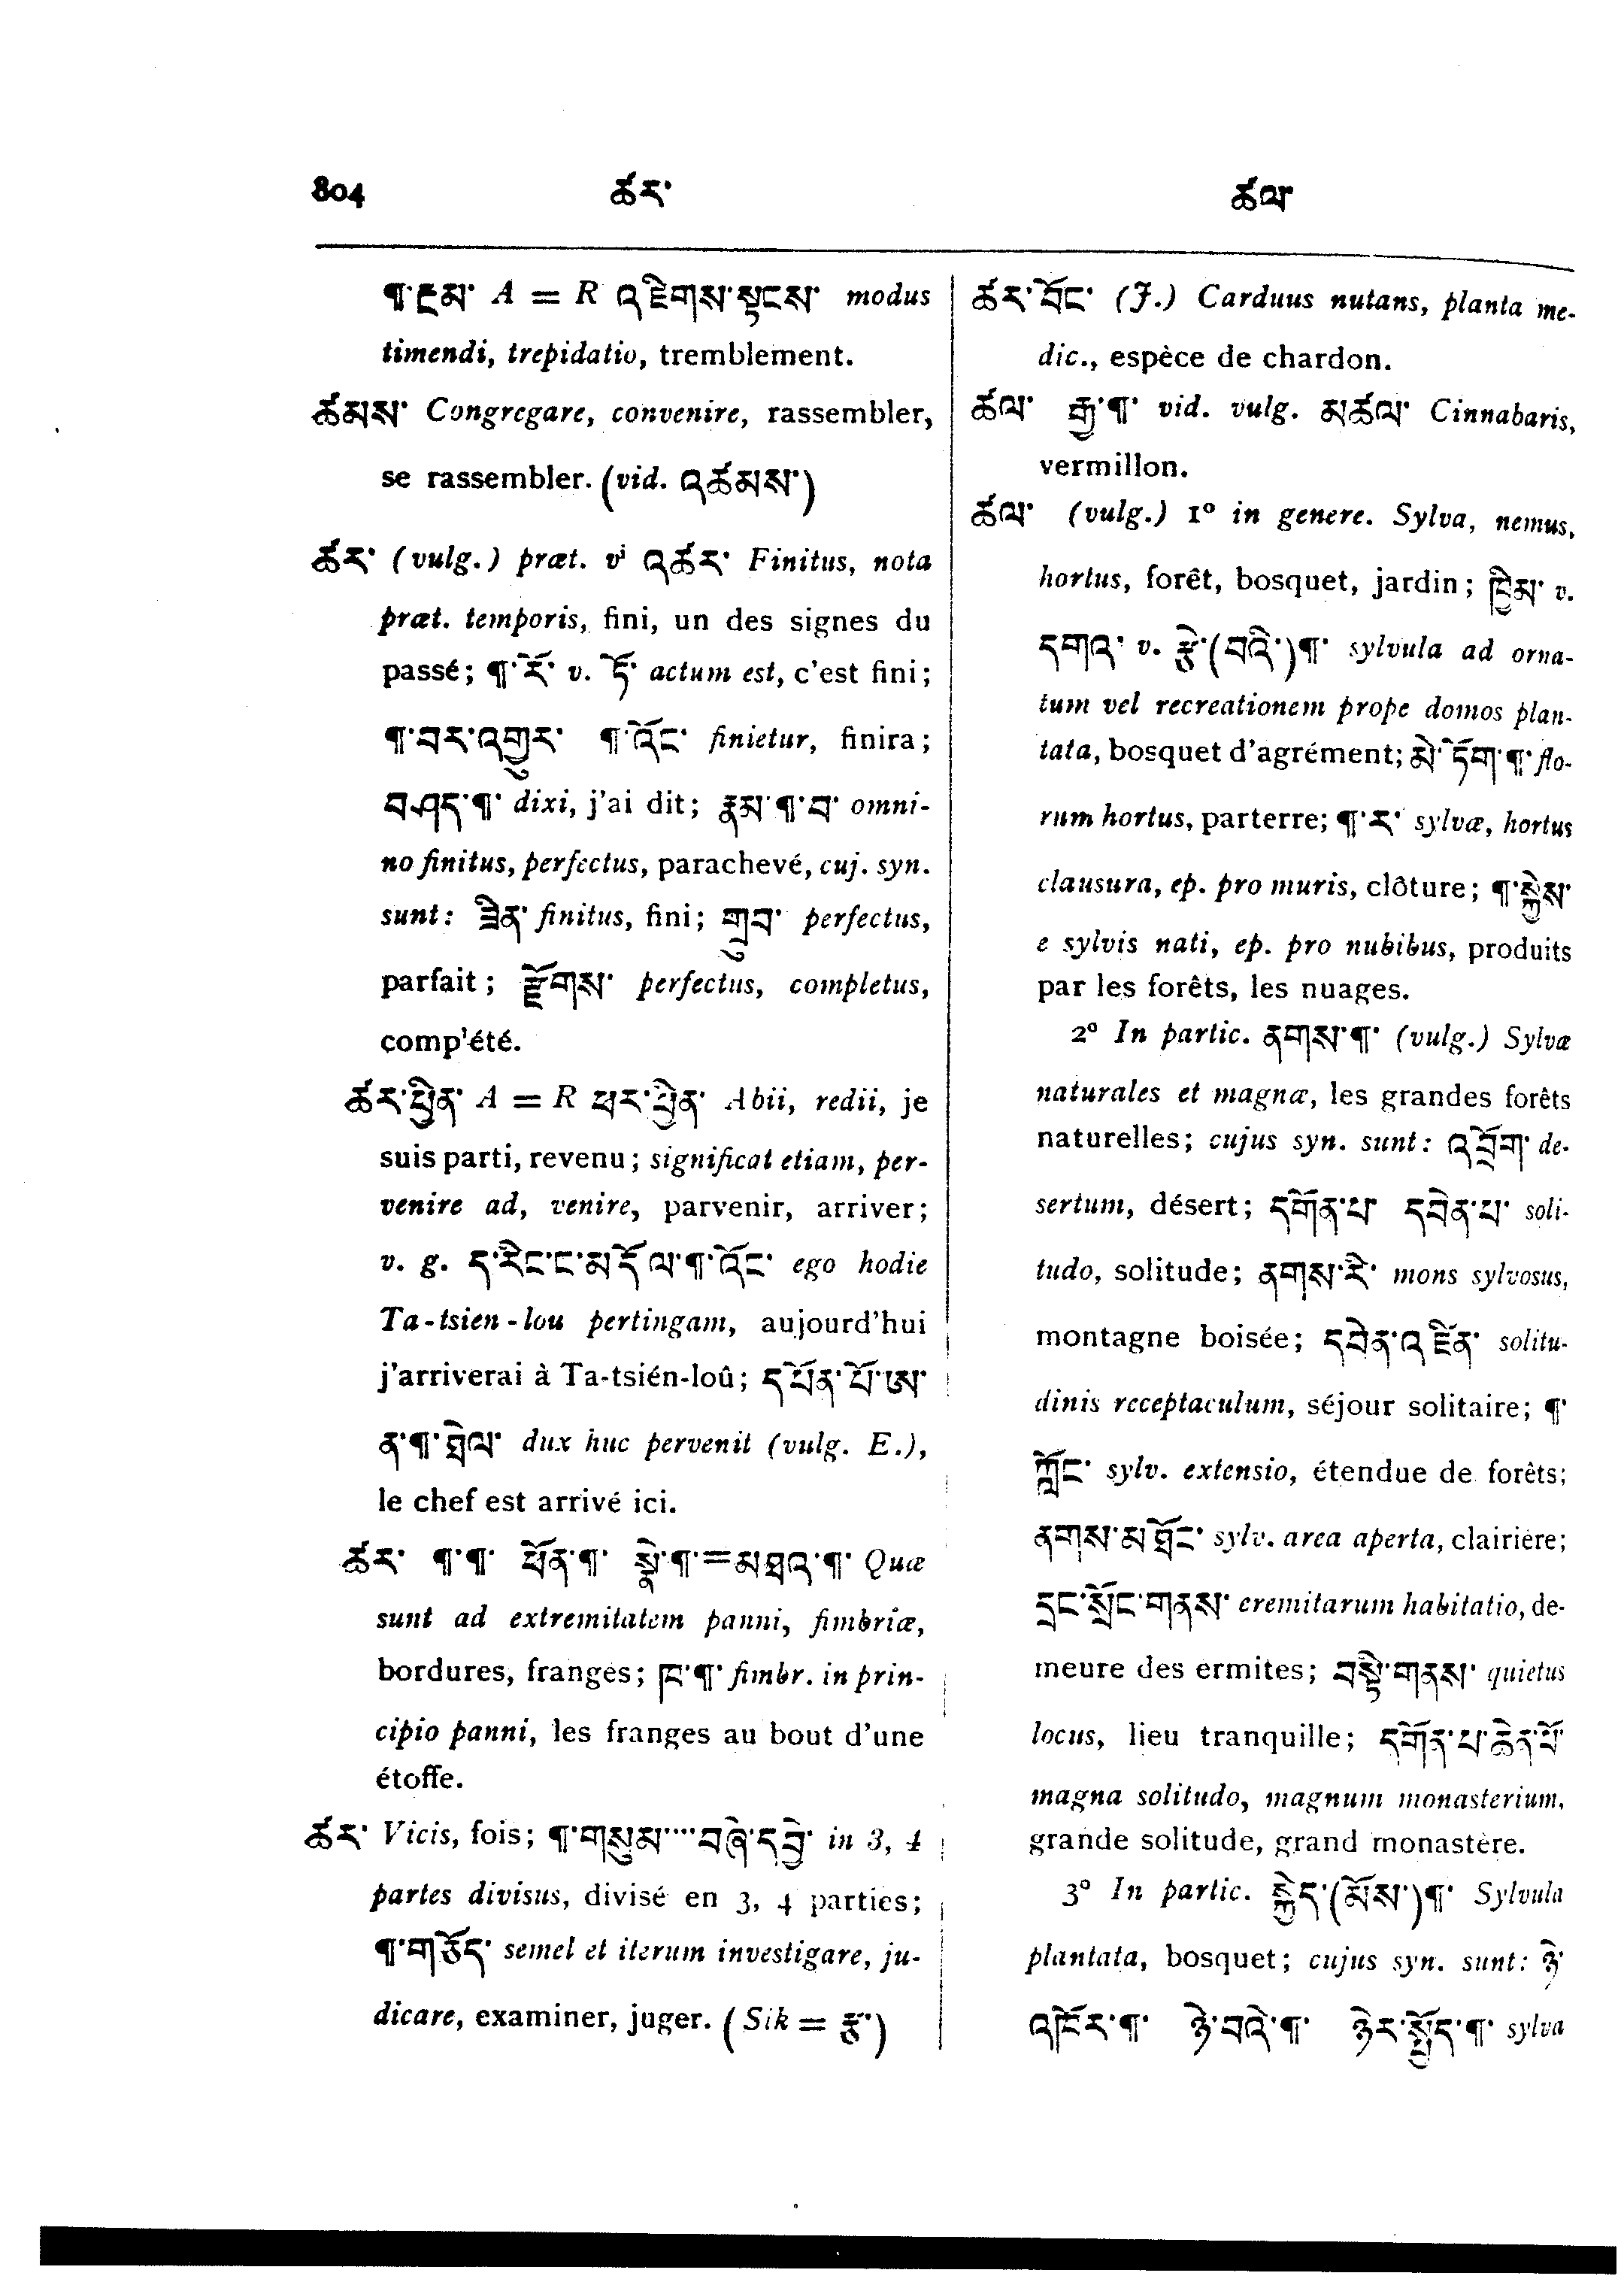 804
ཚར་
ཚལ་
¶་ངམ་ A = R འཇིགས་སྟངས་ modus
timendi, trepidatio, tremblement.
ཚམས་ Congregare, convenire, rassembler,
se rassembler. (vid. འཚམས་)
ཚར་ (vulg.) præt. vi འཚར་ Finitus, nota
præt. temporis, fini, un des signes du
passé; ¶་རོ་ v. ཏོ་ actum est, c'est fini;
¶་བར་འགྱུར་ ¶་འོང་ finietur, finira;
བཤད་¶་ dixi, j'ai dit; རྣམ་¶་བ་ omni-
no finitus, perfectus, parachevé, cuj. syn.
sunt: ཟིན་ finitus, fini; གྲུབ་ perfectus,
parfait; རྫོགས་ perfectus, completus,
comp'été.
ཚར་ཕྱིན་ A = R ཕར་ཕྱིན་ Abii, redii, je
suis parti, revenu; significat etiam, per-
venire ad, venire, parvenir, arriver;
v. g. ད་རིང་ང་མདོ་ལ་¶་འོང་ ego hodie
Ta-tsien-lou pertingam, aujourd'hui
j'arriverai à Ta-tsién-loû; དཔོན་པོ་ཨ་
ན་¶་ཐལ་ dux huc pervenit (vulg. E.),
le chef est arrivé ici.
ཚར་ ¶་¶་ ཕོན་¶་ སྣེ་¶་=མཐའ་¶་ Quæ
sunt ad extremitatem panni, fimbriæ,
bordures, franges; ཁ་¶་ fimbr. in prin-
cipio panni, les franges au bout d'une
étoffe.
ཚར་ Vicis, fois; ¶་གསུམ་····བཞི་དབྱེ་ in 3, 4
partes divisus, divisé en 3, 4 parties;
¶་གཅོད་ semel et iterum investigare, ju-
dicare, examiner, juger. (Sik = རྩ་)
ཚར་བོང་ (J.) Carduus nutans, planta me-
dic., espèce de chardon.
ཚལ་ རྒྱ་¶་ vid. vulg. མཚལ་ Cinnabaris,
vermillon.
ཚལ་ (vulg.) 1º in genere. Sylva, nemus,
hortus, forêt, bosquet, jardin; ཁྱིམ་ v.
དགའ་ v. རྩེ་(བའི་)¶་ sylvula ad orna-
tum vel recreationem prope domos plan-
tata, bosquet d'agrément; མེ་ཏོག་¶་ flo-
rum hortus, parterre; ¶་ར་ sylvæ, hortus
clausura, ep. pro muris, clôture; ¶་སྐྱེས་
e sylvis nati, ep. pro nubibus, produits
par les forêts, les nuages.
2º In partic. ནགས་¶་ (vulg.) Sylvæ
naturales et magnæ, les grandes forêts
naturelles; cujus syn. sunt: འབྲོག་ de-
sertum, désert; དགོན་པ་ དབེན་པ་ soli-
tudo, solitude; ནགས་རི་ mons sylvosus,
montagne boisée; དབེན་འཛིན་ solitu-
dinis receptaculum, séjour solitaire; ¶་
ཀློང་ sylv. extensio, étendue de forêts;
ནགས་མཐོང་ sylv. area aperta, clairière;
དྲང་སྲོང་གནས་ eremitarum habitatio, de-
meure des ermites; བསྟི་གནས་ quietus
locus, lieu tranquille; དགོན་པ་ཆེན་པོ་
magna solitudo, magnum monasterium,
grande solitude, grand monastère.
3º In partic. སྐྱེད་(མོས་)¶་ Sylvula
plantata, bosquet; cujus syn. sunt: ཉེ་
འཁོར་¶་ ཉེ་བའི་¶་ ཉེར་སྤྱོད་¶་ sylva